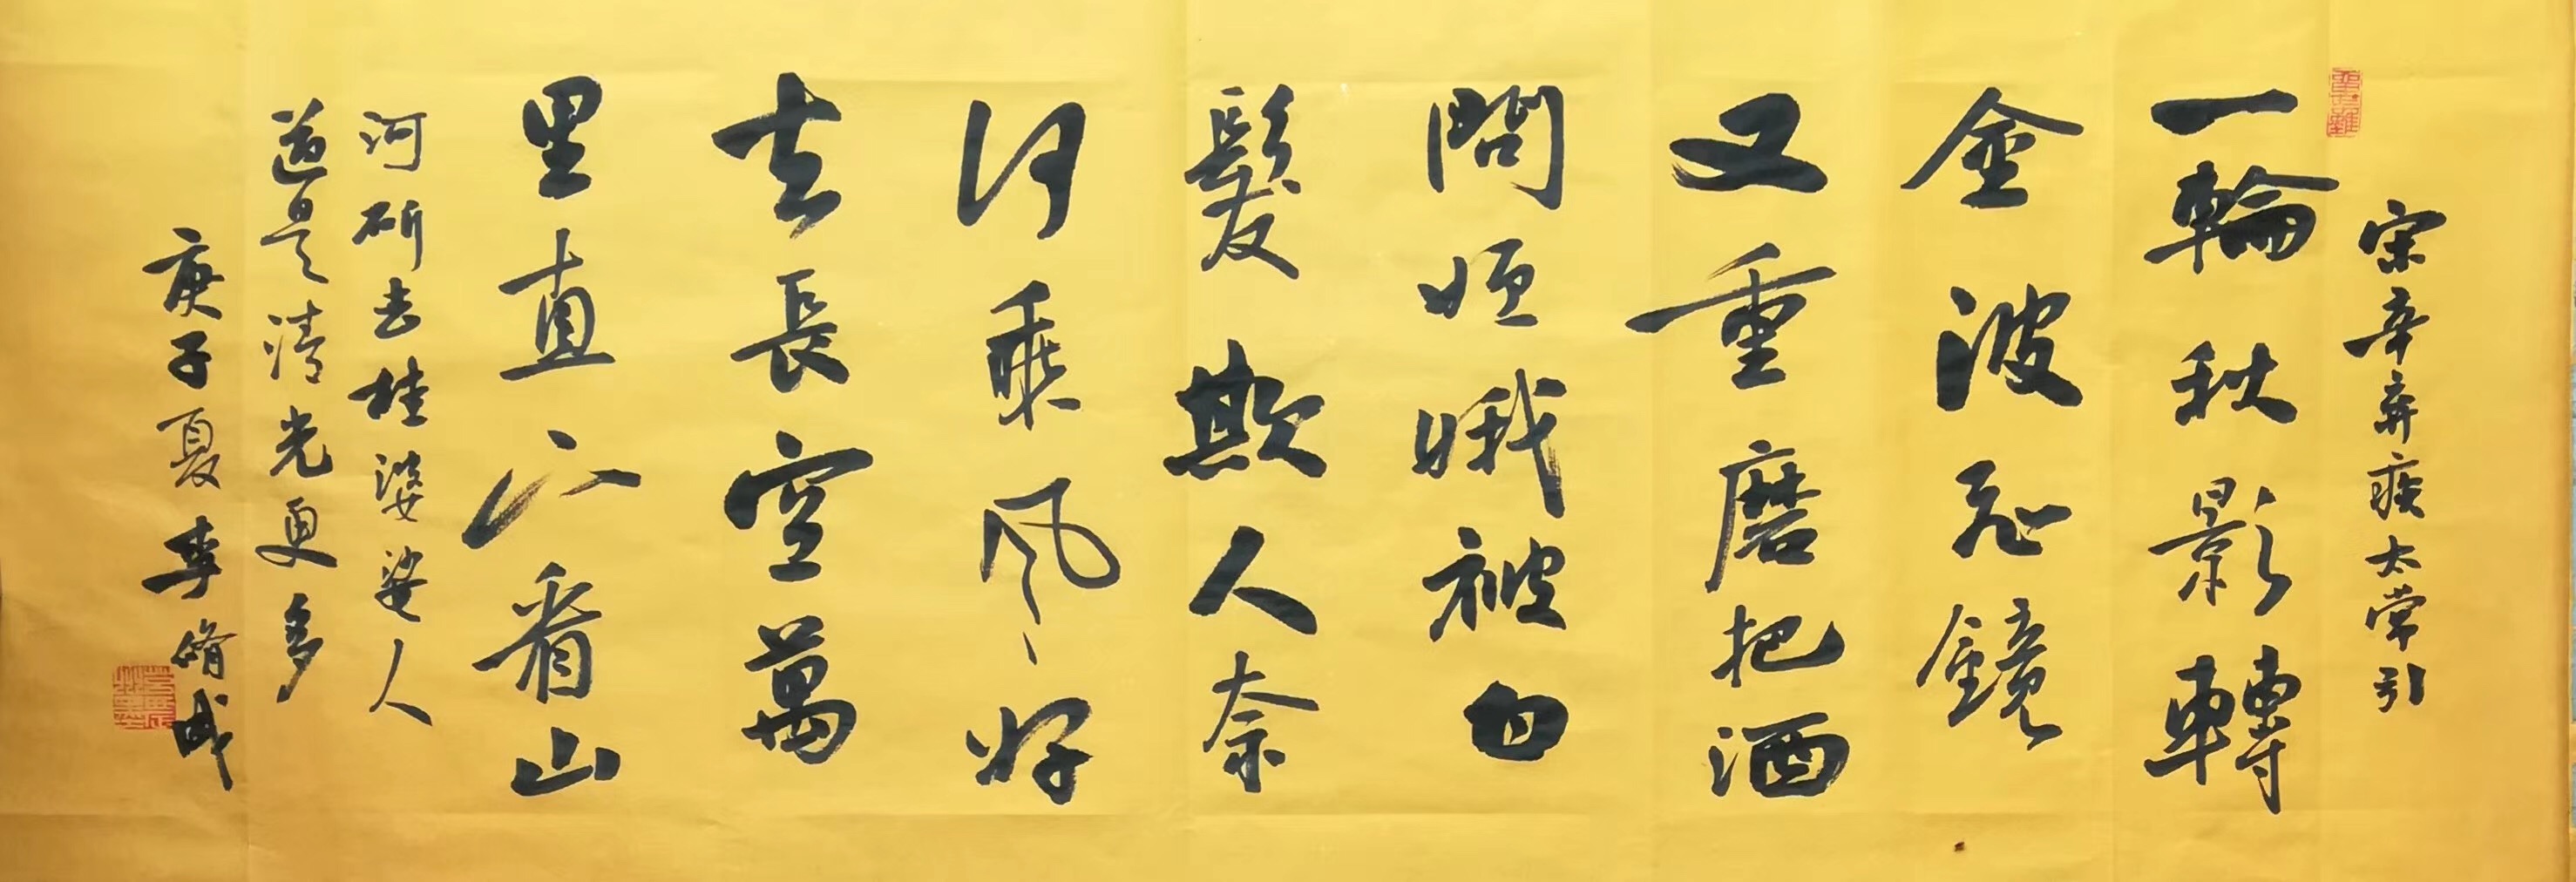 宋辛弃疾太常引
一輪秋影轉
金波飛鏡
又重磨把酒
問姮娥被白
髮欺人奈
何乘風好
去長空萬
里直下看山
河斫去桂婆娑人
道是清光更多
庚子夏李脩成